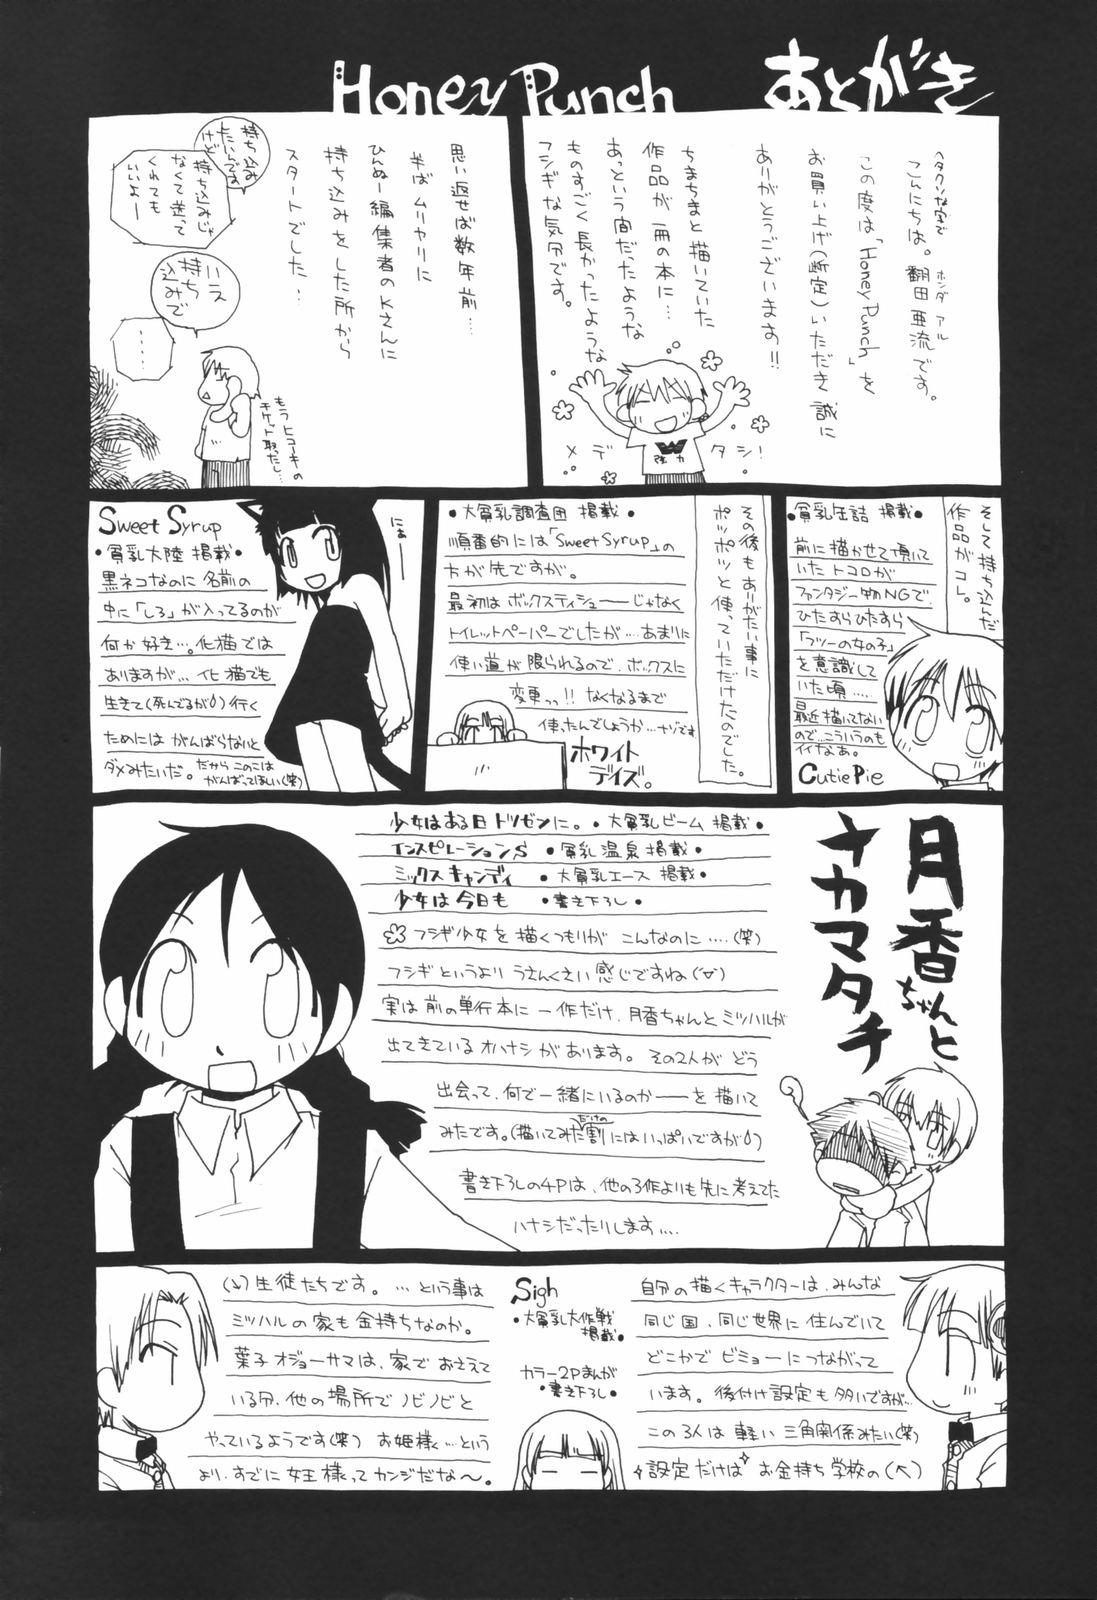 Honey Punch あとがき
ヘタクソな字で
こんにちは。翻田亜流です。
ホンダ アル
この度は「Honey Punch」を
お買い上げ(断定)いただき誠に
ありがとうございます!!
ちまちまと描いていた
作品が一冊の本に…
あっという間だったような
ものすごく長かったような
フシギな気分です。
メデタシ!
強力
思い返せば数年前…
半ばムリヤリに
ひんぬー編集者のKさんに
持ち込みをした所から
スタートでした…
持ち込み
したいんです
けど
持ち込みじゃ
なくて送って
くれても
いいよー
いえ
持ち
込みで
……
もうヒコーキの
チケット取ったし…
そして持ち込んだ
作品がコレ。
•貧乳缶詰 掲載•
前に描かせて頂いて
いたトコロが
ファンタジー物NGで、
ひたすらひたすら
「フツーの女の子」
を意識して
いた頃……
最近描いてない
ので、こういうのも
イイなあ。
Cutie Pie
その後もありがたい事に
ポツポツと使っていただけたのでした。
•大貧乳調査団 掲載•
順番的には「Sweet Syrup」の
方が先ですが。
最初はボックスティシューーじゃなく
トイレットペーパーでしたが…あまりに
使い道が限られるので、ボックスに
変更っっ!! なくなるまで
使ったんでしょうか…ナゾです
ホワイト
デイズ。
Sweet Syrup
•貧乳大陸 掲載•
黒ネコなのに名前の
中に「しろ」が入ってるのが
何か好き…。化猫では
ありますが…化猫でも
生きて(死んでるが)行く
ためにはがんばらないと
ダメみたいだ。だからこのこは
がんばってほしい(笑)
にぁー
月香ちゃんと
ナカマタチ
少女はある日トツゼンに。•大貧乳ビーム 掲載•
インスピレーションS •貧乳温泉 掲載•
ミックスキャンディ •大貧乳エース 掲載•
少女は今日も •書き下ろし•
フシギ少女を描くつもりが こんなのに…(笑)
フシギというより うさんくさい感じですね(▽)
実は前の単行本に一作だけ、月香ちゃんとミツハルが
出てきているオハナシがあります。その2人が どう
出会って、何で一緒にいるのかーーを描いて
みたです。(描いてみた割にはいっぱいですが)
だけの
書き下ろしの4Pは、他の3作よりも先に考えてた
ハナシだったりします…
Sigh
•大貧乳大作戦
掲載•
カラー2Pまんが
•書き下ろし•
自分の描くキャラクターは、みんな
同じ国、同じ世界に住んでいて
どこかでビミョーにつながって
います。後付け設定も多いですが…
この3人は 軽い三角関係みたい(笑)
設定だけは お金持ち学校の(↗)
(↘)生徒たちです。…という事は
ミツハルの家も金持ちなのか。
葉子オジョーサマは、家でおさえて
いる分、他の場所でノビノビと
やっているようです(笑) お姫様く…という
より、すでに女王様ってカンジだな〜。